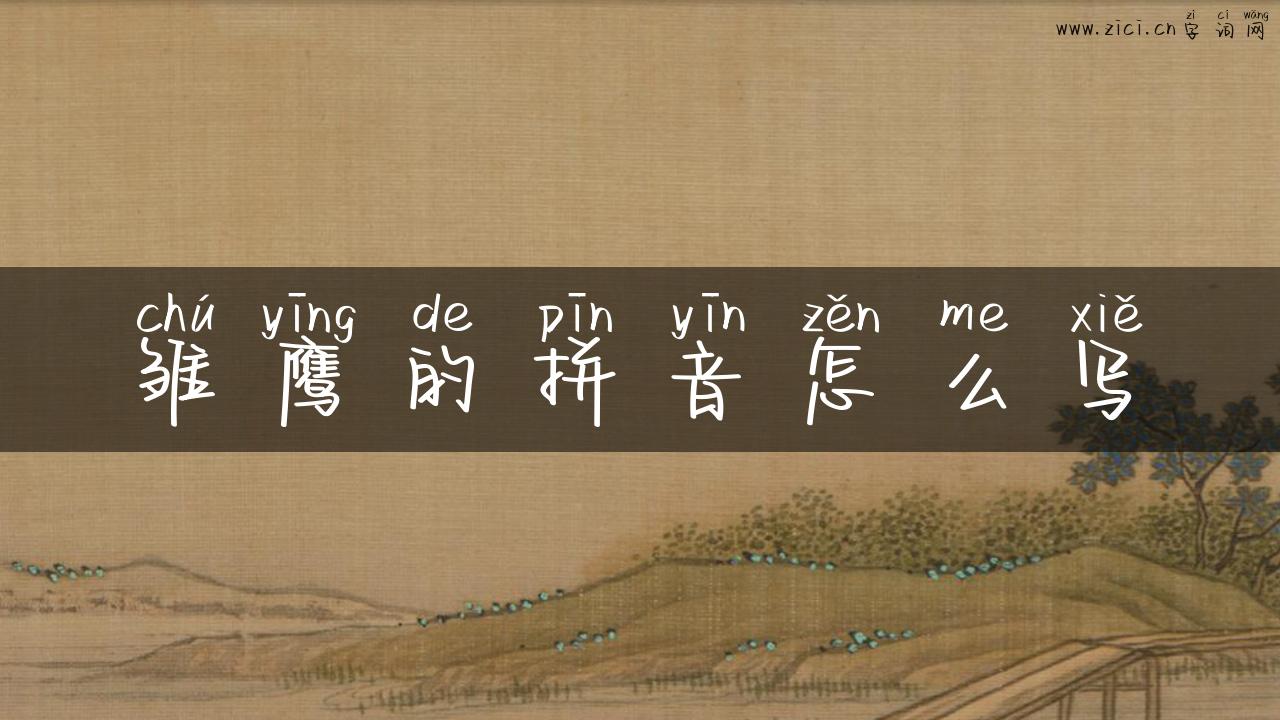 zì cí wǎng
www.zici.cn字词网
chú yīng de pīn yīn zěn me xiě
雏鹰的拼音怎么写